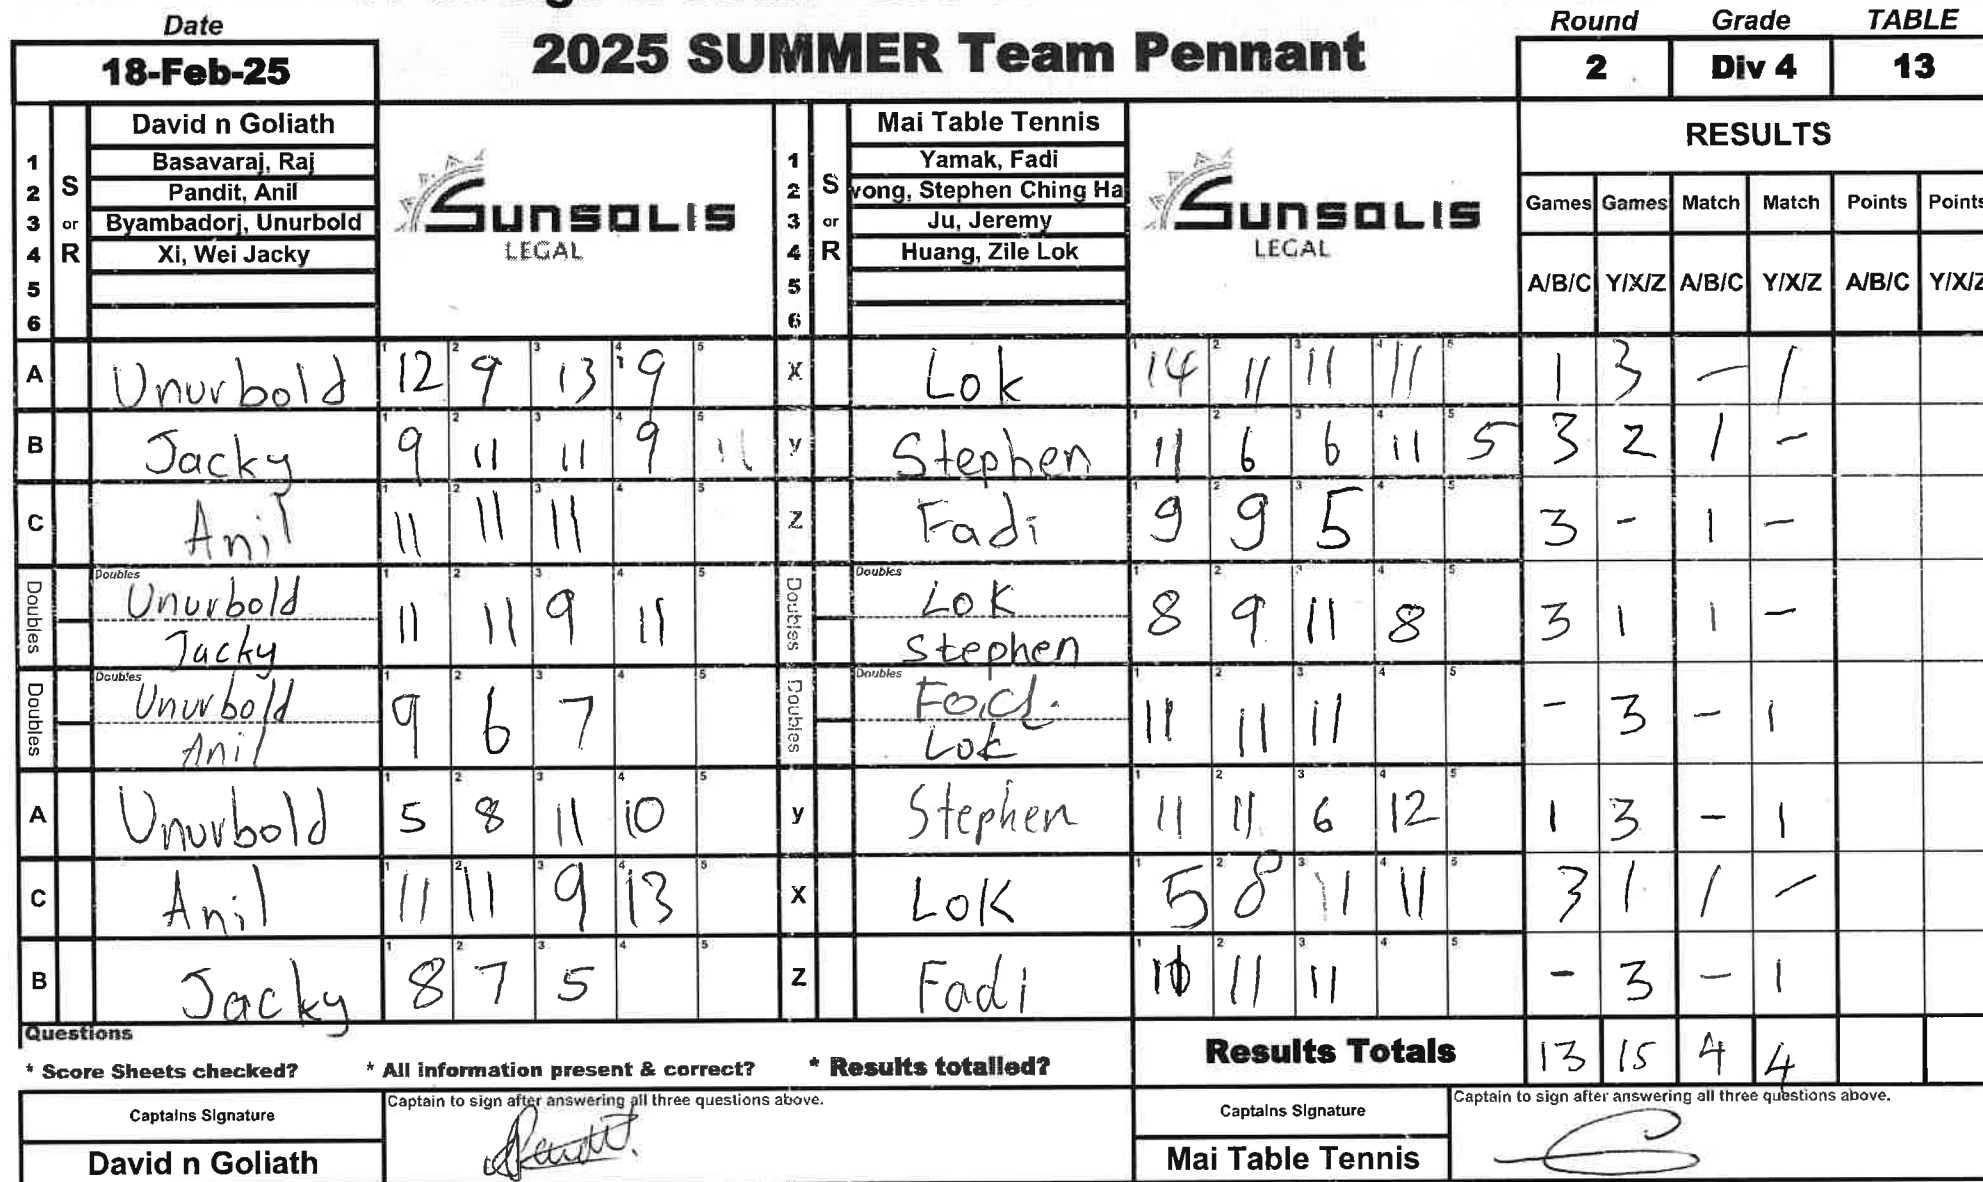 Date
18-Feb-25
2025 SUMMER Team Pennant
Round Grade TABLE
2 Div 4 13
David n Goliath
1 Basavaraj, Raj
2 S Pandit, Anil
3 or Byambadorj, Unurbold
4 R Xi, Wei Jacky
5
6
SUNSOLIS
LEGAL
Mai Table Tennis
1 Yamak, Fadi
2 S vong, Stephen Ching Ha
3 or Ju, Jeremy
4 R Huang, Zile Lok
5
6
SUNSOLIS
LEGAL
RESULTS
Games Games Match Match Points Points
A/B/C Y/X/Z A/B/C Y/X/Z A/B/C Y/X/Z
A Unurbold 12 9 13 9 X Lok 14 11 11 11 1 3 - 1
B Jacky 9 11 11 9 11 y Stephen 11 6 6 11 5 3 2 1 -
C Anil 11 11 11 Z Fadi 9 9 5 3 - 1 -
Doubles Doubles Unurbold Jacky 11 11 9 11 Doubles Doubles Lok Stephen 8 9 11 8 3 1 1 -
Doubles Doubles Unurbold Anil 9 6 7 Doubles Doubles Fadi Lok 11 11 11 - 3 - 1
A Unurbold 5 8 11 10 y Stephen 11 11 6 12 1 3 - 1
C Anil 11 11 9 13 X Lok 5 8 11 11 3 1 1 -
B Jacky 8 7 5 Z Fadi 11 11 11 - 3 - 1
Questions
* Score Sheets checked? * All information present & correct? * Results totalled?
Results Totals 13 15 4 4
Captains Signature
Captain to sign after answering all three questions above.
David n Goliath
Captains Signature
Captain to sign after answering all three questions above.
Mai Table Tennis